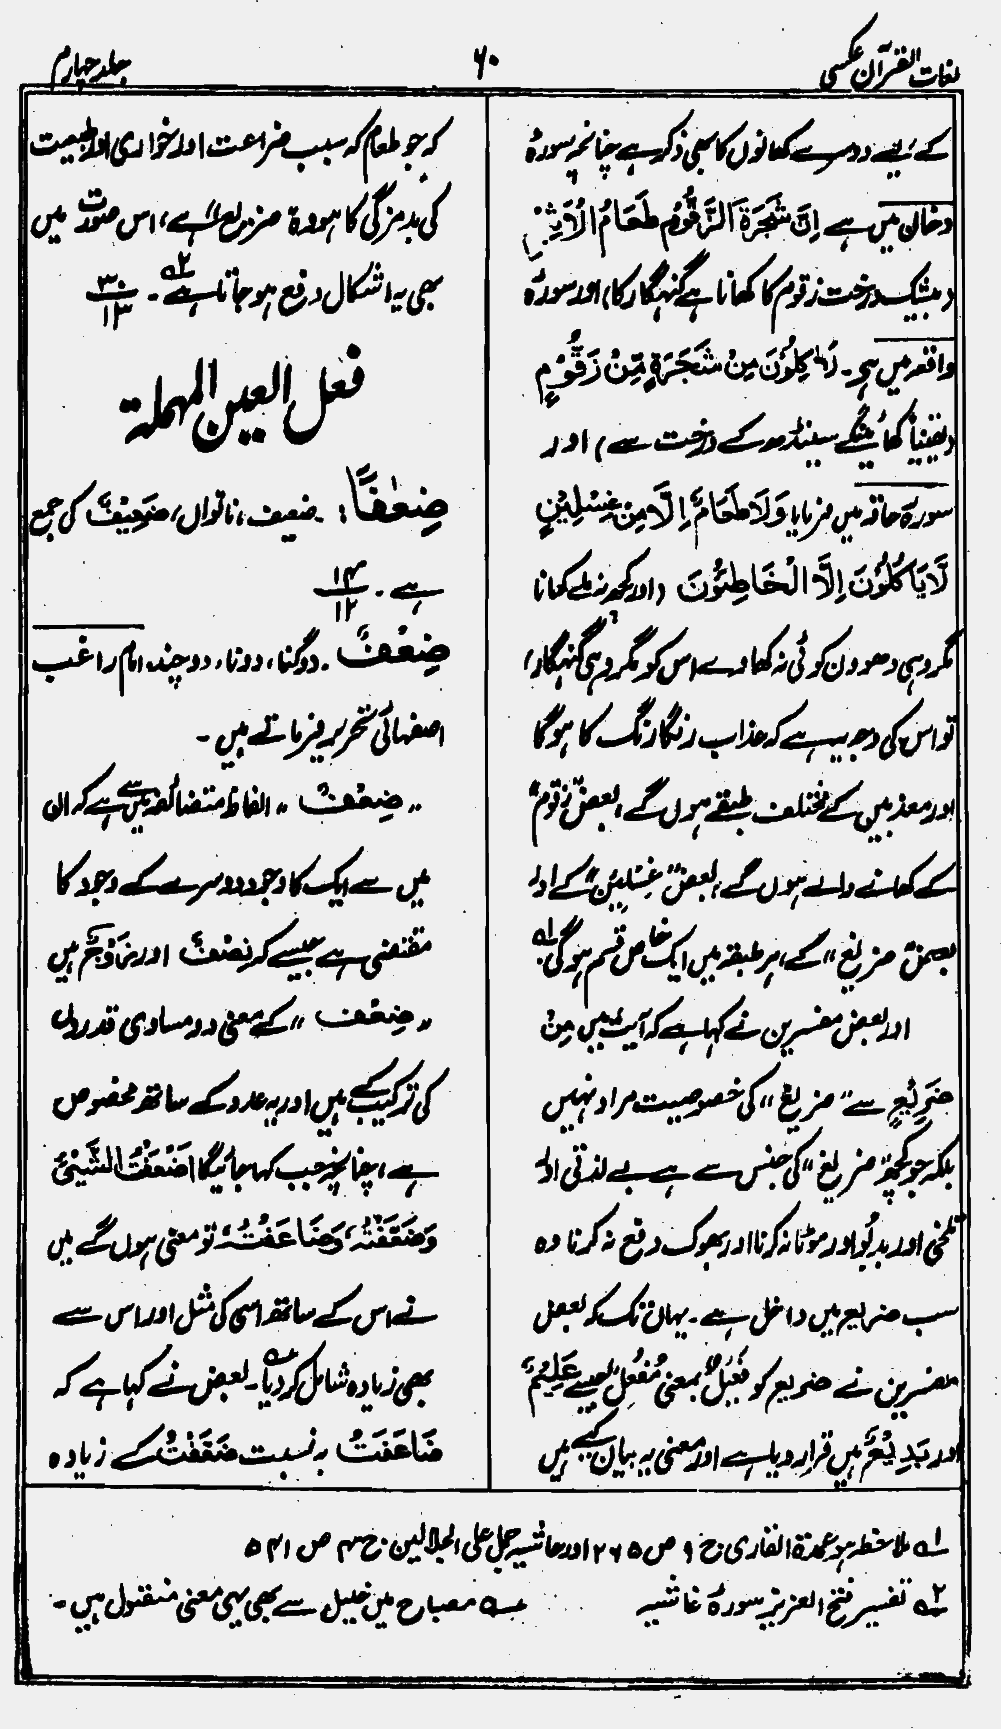 لغات القرآن عکسی
۶۰
جلد چہارم
کے لیے دوسرے کھانوں کا بھی ذکر ہے چنانچہ سورۂ
دخان میں ہے اِنَّ شَجَرَةَ الزَّقُّوْمِ طَعَامُ الْاَثِيْمِ
(بیشک درخت زقوم کا کھانا ہے گنہگار کا) اور سورۂ
واقعہ میں ہی۔ لَاٰكِلُوْنَ مِنْ شَجَرَةٍ مِّنْ زَقُّوْمٍ
(یقیناً کھائینگے سینڈھ کے درخت سے) اور
سورۂ حاقہ میں فرمایا وَلَا طَعَامٌ اِلَّا مِنْ غِسْلِيْنٍ
لَّا يَاْكُلُوْنَ اِلَّا الْخَاطِئُوْنَ (اور کچھ نہ ملے کھانا
مگر وہی دھوون کوئی نہ کھاوے اس کو مگر وہی گنہگار)
تو اس کی وجہ یہ ہے کہ عذاب رنگارنگ کا ہوگا
اور معذبین کے مختلف طبقے ہوں گے، بعض "زقوم"
کے کھانے والے ہوں گے، بعض "غِسْلِيْن" کے اور
بعض "ضریع" کے، ہر طبقہ میں ایک خاص قسم ہوگی ۱ے
اور بعض مفسرین نے کہا ہے کہ آیت میں مِنْ
ضَرِيْعٍ سے "ضریع" کی خصوصیت مراد نہیں
بلکہ جو کچھ "ضریع" کی جنس سے ہے بے لذتی اور
تلخی اور بدبُو اور موٹا نہ کرنا اور بھوک دفع نہ کرنا وہ
سب ضریع میں داخل ہے۔ یہاں تک کہ بعض
مفسرین نے ضریع کو فَعِيْلٌ بمعنی مُفْعِل جیسے عَلِيْمٌ
اور بَدِيْعٌ میں قرار دیا ہے اور معنی یہ بیان کیے ہیں
کہ جو طعام کہ سبب ضراعت اور خواری اور طبیعت
کی بدمزگی کا ہو وہ "ضریع" ہے، اس صورت میں
بھی یہ اشکال رفع ہو جاتا ہے ۲ے۔ ۳۰/۱۳
فعل العین المہملة
ضِعٰفًا: ۔ ضعیف، ناتواں، ضَعِيْفٌ کی جمع
ہے۔ ۱۴/۱۲
ضِعْفٌ ۔ دوگنا، دونا، دوچند، امام راغب
اصفہانی تحریر فرماتے ہیں۔
"ضِعْفٌ" الفاظ متضائفہ میں سے ہے کہ ان
میں سے ایک کا وجود دوسرے کے وجود کا
مقتضی ہے جیسے کہ نِصْفٌ اور زَوْجٌ ہیں
"ضِعْف" کے معنی دو مساوی قدروں
کی ترکیب کے ہیں اور یہ عدد کے ساتھ مخصوص
ہے، چنانچہ جب کہا جائیگا اَضْعَفْتُ الشَّيْئَ
وَضَعَّفْتُهٗ، وَضَاعَفْتُهٗ تو معنی ہوں گے میں
نے اس کے ساتھ اسی کی مثل اور اس سے
بھی زیادہ شامل کر دیا۔ بعض نے کہا ہے کہ
ضَاعَفْتُ بہ نسبت ضَعَّفْتُ کے زیادہ
۱ے ملاحظہ ہو عمدۃ القاری ج ۹ ص ۲۶۵ اور حاشیہ جمل علی الجلالین ج ۴ ص ۵۴۱
۲ے تفسیر فتح العزیز سورۂ غاشیہ
ے مصباح میں خلیل سے بھی یہی معنی منقول ہیں۔